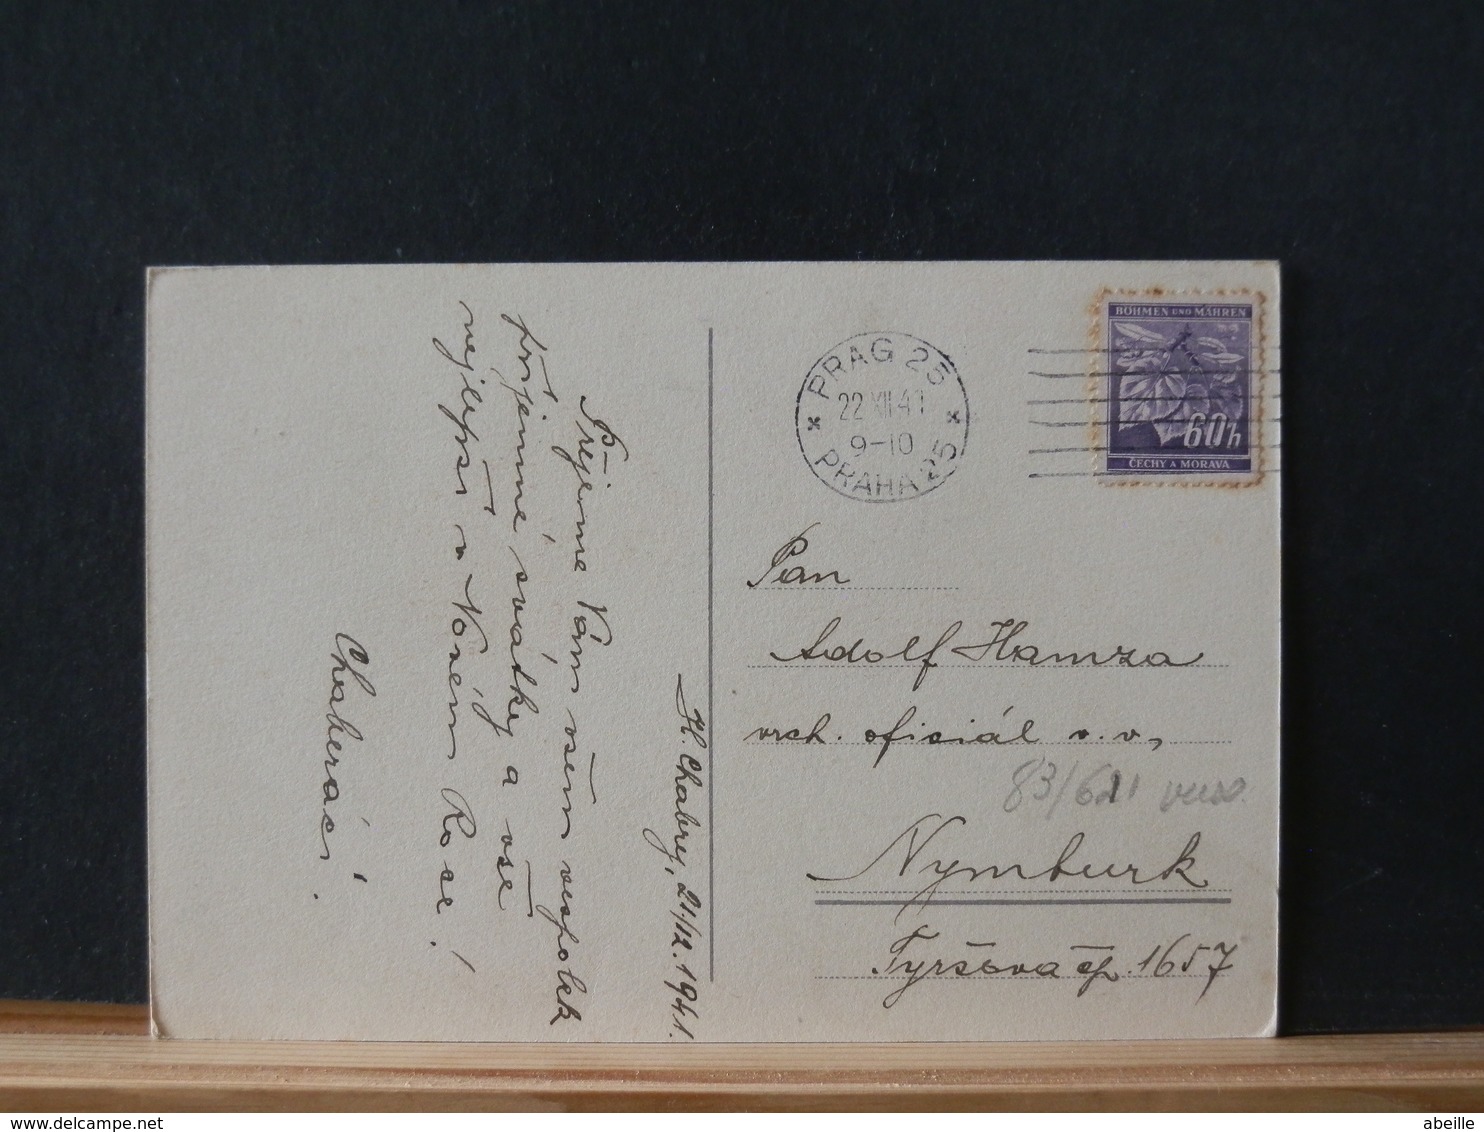 H. Chabry, 21/12. 1941.
Přejeme Vám všem vespolek
příjemné svátky a vše
nejlepší v Novém Roce!
Chaberáci.
PRAG 25
22 XII 41
9-10
PRAHA 25
BÖHMEN UND MÄHREN
60h
ČECHY A MORAVA
Pan
Adolf Hamza
vrch. oficiál v. v.,
83/621
Nymburk
Tyršova čp. 1657
abeille